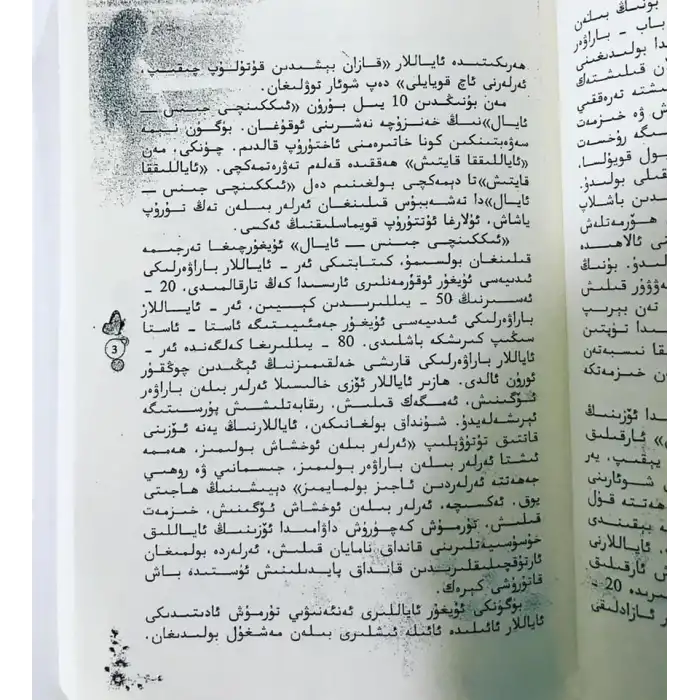 ھەرىكىتىدە ئاياللار «قازان بېشىدىن قۇتۇلۇپ چىقىپ،
ئەرلەرنى ئاچ قويايلى» دەپ شوئار توۋلىغان.
مەن بۇنىڭدىن 10 يىل بۇرۇن «ئىككىنچى جىنس —
ئايال»نىڭ خەنزۇچە نەشرىنى ئوقۇغان. بۈگۈن نېمە
سەۋەبتىنكىن كونا خاتىرەمنى ئاختۇرۇپ قالدىم. چۈنكى، مەن
«ئاياللىققا قايتىش» ھەققىدە قەلەم تەۋرەتمەكچى. «ئاياللىققا
قايتىش»تا دېمەكچى بولغىنىم دەل «ئىككىنچى جىنس —
ئايال»دا تەشەببۇس قىلىنغان ئەرلەر بىلەن تەڭ تۇرۇپ
ياشاش، ئۇلارغا ئۇتتۇرۇپ قويماسلىقنىڭ ئەكسى.
«ئىككىنچى جىنس — ئايال» ئۇيغۇرچىغا تەرجىمە
قىلىنغان بولسىمۇ، كىتابتىكى ئەر - ئاياللار باراۋەرلىكى
ئىدىيەسى ئۇيغۇر ئوقۇرمەنلىرى ئارىسىدا كەڭ تارقالمىدى. 20 -
ئەسىرنىڭ 50 - يىللىرىدىن كېيىن، ئەر - ئاياللار
باراۋەرلىكى ئىدىيەسى ئۇيغۇر جەمئىيىتىگە ئاستا - ئاستا
سىڭىپ كىرىشكە باشلىدى. 80 - يىللىرىغا كەلگەندە ئەر -
ئاياللار باراۋەرلىكى قارىشى خەلقىمىزنىڭ ئېڭىدىن چوڭقۇر
ئورۇن ئالدى. ھازىر ئاياللار ئۆزى خالىسىلا ئەرلەر بىلەن باراۋەر
ئۆگىنىش، ئەمگەك قىلىش، رىقابەتلىشىش پۇرسىتىگە
ئېرىشەلەيدۇ. شۇنداق بولغانىكەن، ئاياللارنىڭ يەنە ئۆزىنى
قاتتىق تۇتۇۋېلىپ «ئەرلەر بىلەن ئوخشاش بولىمىز، ھەممە
ئىشتا ئەرلەر بىلەن باراۋەر بولىمىز، جىسمانىي ۋە روھىي
جەھەتتە ئەرلەردىن ئاجىز بولمايمىز» دېيىشىنىڭ ھاجىتى
يوق. ئەكسىچە، ئەرلەر بىلەن ئوخشاش ئۆگىنىش، خىزمەت
قىلىش، تۇرمۇش كەچۈرۈش داۋامىدا ئۆزىنىڭ ئاياللىق
خۇسۇسىيەتلىرىنى قانداق نامايان قىلىش، ئەرلەردە بولمىغان
ئارتۇقچىلىقلىرىدىن قانداق پايدىلىنىش ئۈستىدە باش
قاتۇرۇشى كېرەك.
بۈگۈنكى ئۇيغۇر ئاياللىرى ئەنئەنىۋى تۇرمۇش ئادىتىدىكى
ئاياللار ئائىلىدە ئائىلە ئىشلىرى بىلەن مەشغۇل بولىدىغان.
3
بۇنىڭ بىلەن
باب - باراۋەر
دا بولىدىغىنى
ن قىلىشتەك
ىشتە تەرەققىي
ش ۋە خىزمەت
ىگە رۇخسەت
بول قويۇلسا،
قىلى بولىدۇ.
ىدىن باشلاپ
، ھۆرمەتلەش
نى ئالاھىدە
لىدۇ. بۇنىڭ
ەۋۋۇر قىلىش
تەن بېرىپ
ىدا تۇيتىن
ققا نىسبەتەن
ن خىزمەتكە
دا ئۆزىنىڭ
» ئارقىلىق
يېقىپ، يەر
شوئارىنى
ھەتتە قول
بېقىندى
، ئاياللارنى
ش ئارقىلىق
ىرىدە 20 -
ر ئازادلىقى